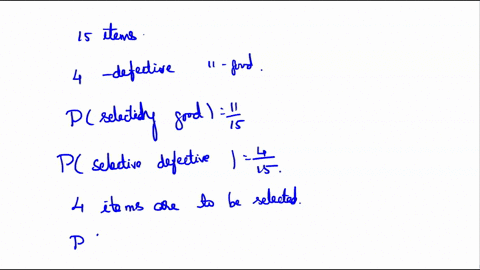 15 items.
4 -defective 11-good.
P( selectidy good) = 11/15
P( selective defective ) = 4/15.
4 items are to be selected.
P